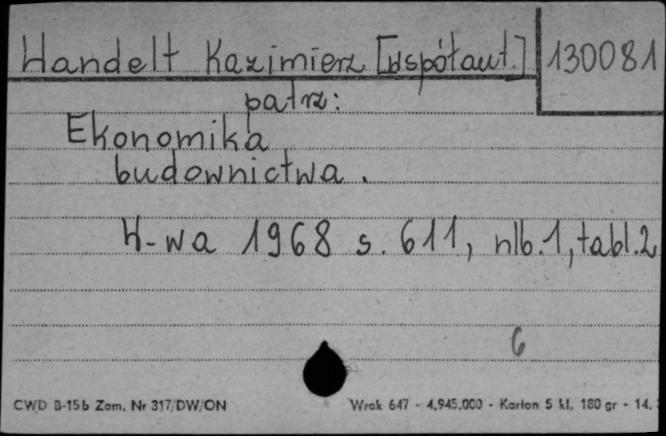 Handelt Kazimierz [współaut.] 130081
patrz:
Ekonomika
budownictwa.
W-wa 1968 s. 611, nlb.1, tabl.2
6
CWD B-15b Zam. Nr 317/DW/ON Wrak 647 - 4.945.000 - Karton 5 kl. 180 gr - 14.